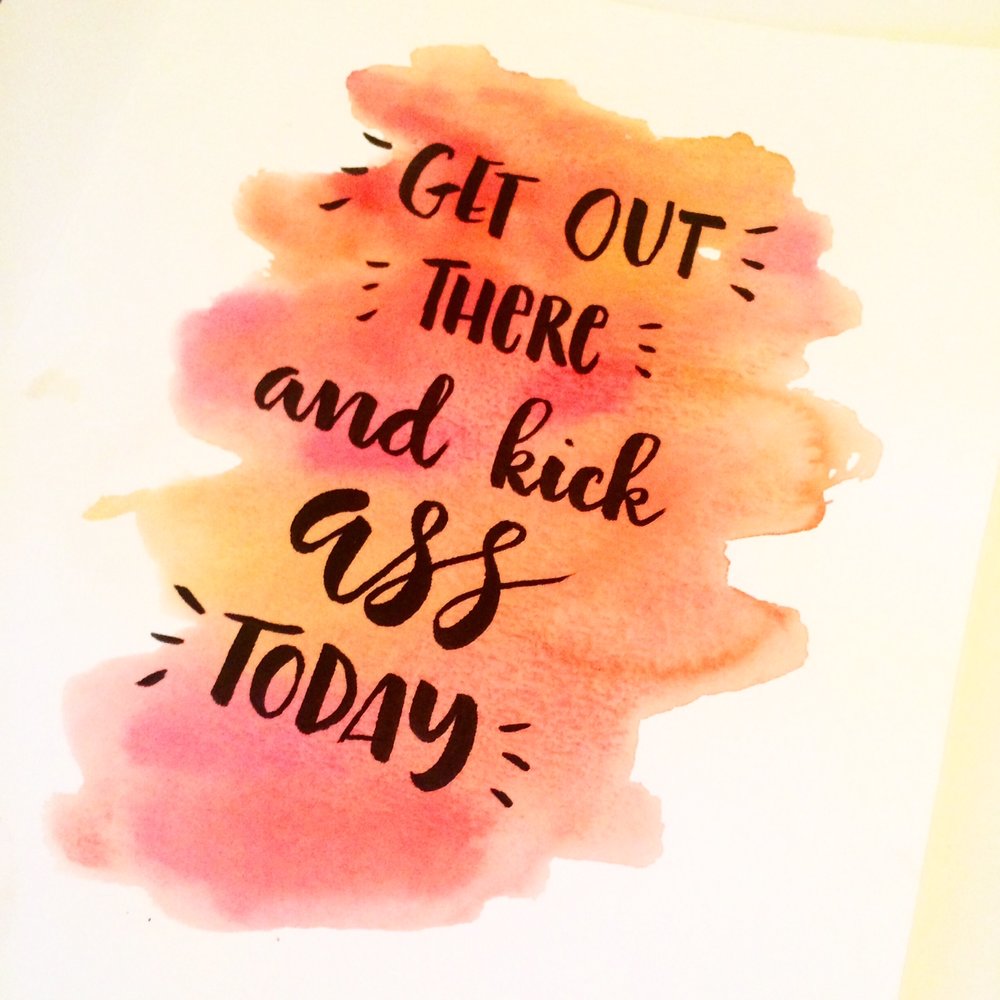 GET OUT
THERE
and kick
ass
TODAY